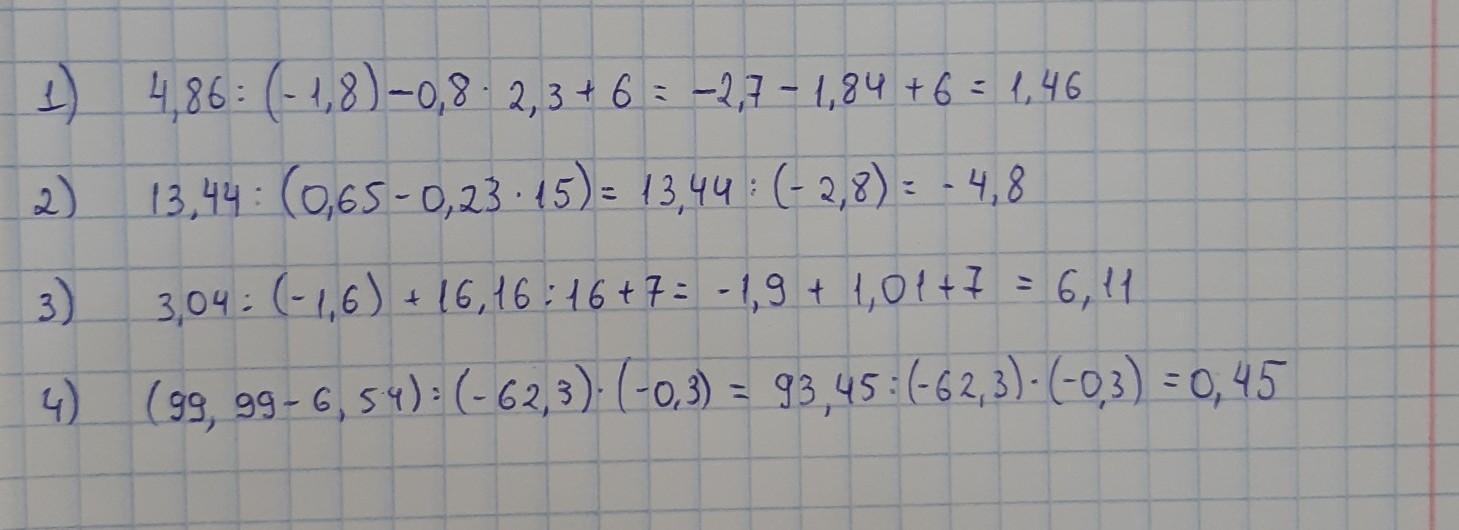 1) 4,86 : (-1,8) - 0,8 · 2,3 + 6 = -2,7 - 1,84 + 6 = 1,46
2) 13,44 : (0,65 - 0,23 · 15) = 13,44 : (-2,8) = -4,8
3) 3,04 : (-1,6) + 16,16 : 16 + 7 = -1,9 + 1,01 + 7 = 6,11
4) (99,99 - 6,54) : (-62,3) · (-0,3) = 93,45 : (-62,3) · (-0,3) = 0,45